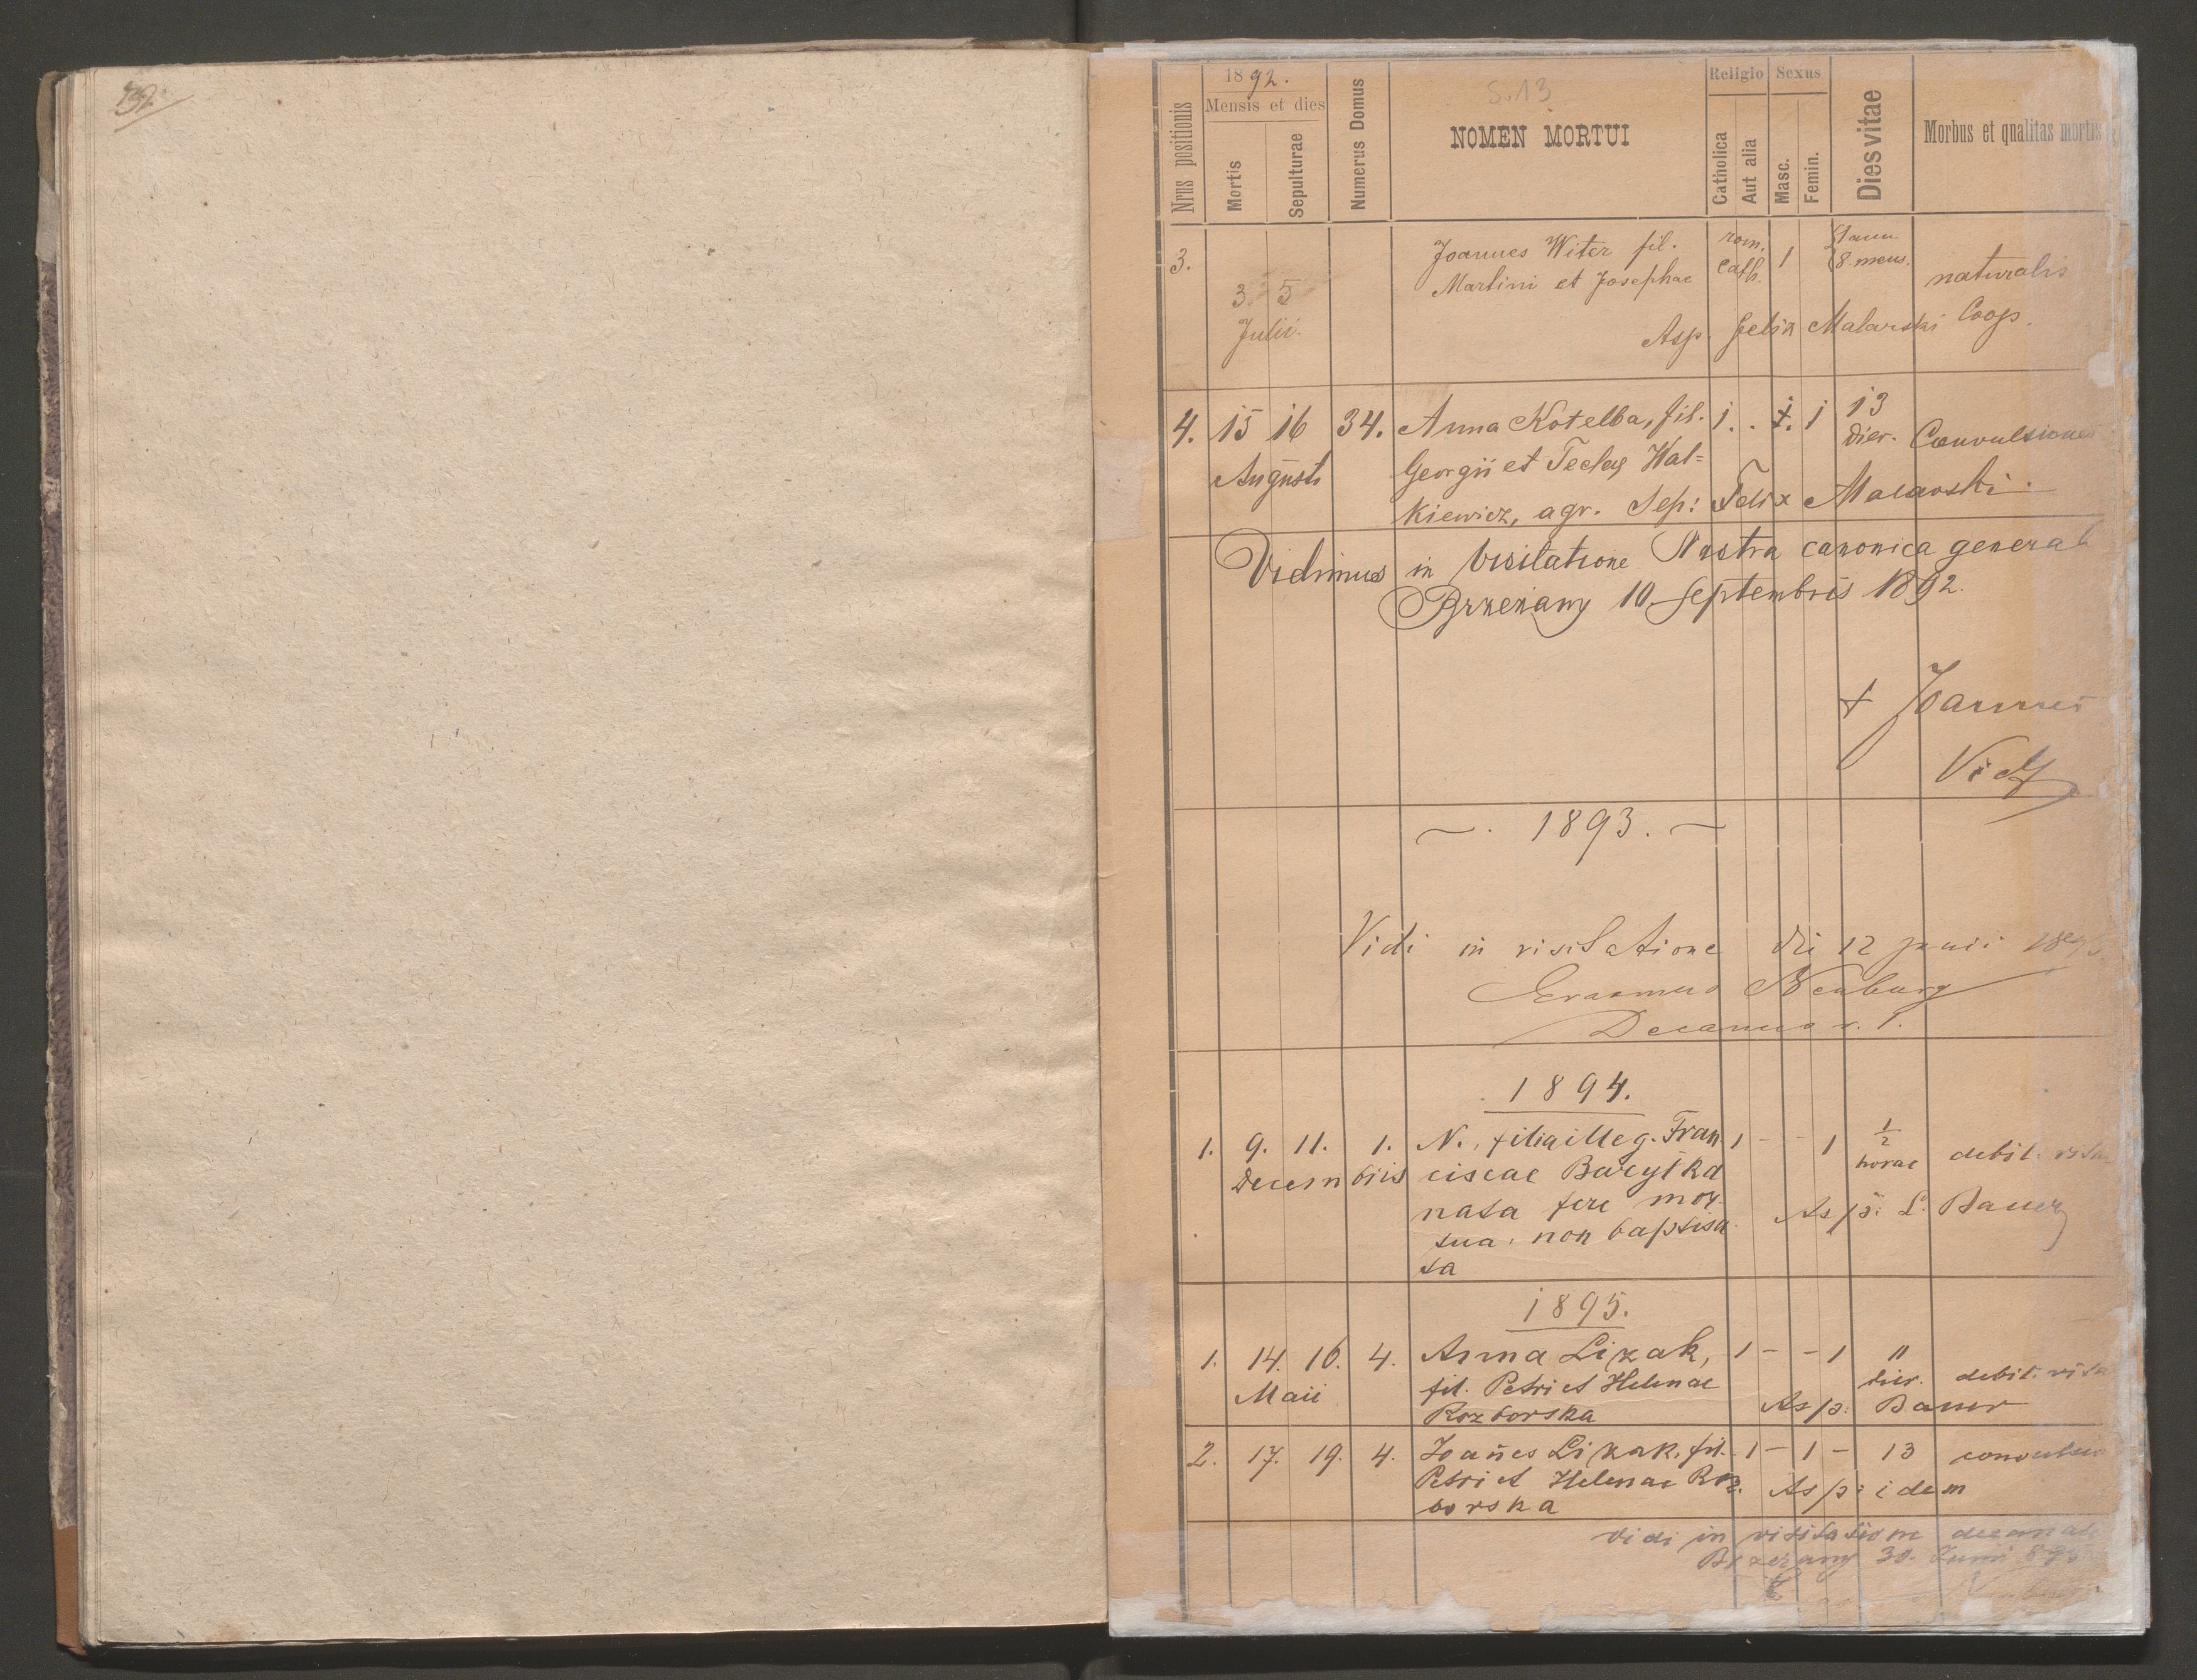 S. 13
Nrus positionis
1892.
Mensis et dies
Mortis
Sepulturae
Numerus Domus
NOMEN MORTUI
Religio
Catholica
Aut alia
Sexus
Masc.
Femin.
Dies vitae
Morbus et qualitas mortis
3. Joannes Witer fil. rom. 1 1 ann
3 5 Martini et Josephae Cath. 8 mens. naturalis
Julii. Asp. Felix Malarski Coop.
4. 15 16 34. Anna Kotelba, fil. 1 . . 1 13 dier. Convulsiones
Augusti Georgii et Teclae Wal=
kiewicz, agr. Sep: Felix Malarski.
Vidimus in Visitatione Nostra canonica generali
Brzeżany 10 Septembris 1892.
+ Joannes
1893.
Vidi in visitatione die 12 junii
Erasmus Neuburg
Decanus
1894.
1. 9. 11. 1. N., filia illeg. Fran 1 - - 1 1/2 horae debil. vitae
Decembris ciscae
nata fere mor Asp: L. Bauer
tua, non baptisa
ta
1895.
1. 14. 16. 4. Anna Lizak, 1 - - 1 11 dier. debil. vitae
Maii fil. Petri et Helenae
Rozborska Asp: Bauer
2. 17. 19. 4. Joañes Lizak, fil. 1 - 1 - 13 convulsio
Petri et Helenae Roz. Asp: idem
borska
Vidi in visitatione decanali
Brzeżany 30. Junii